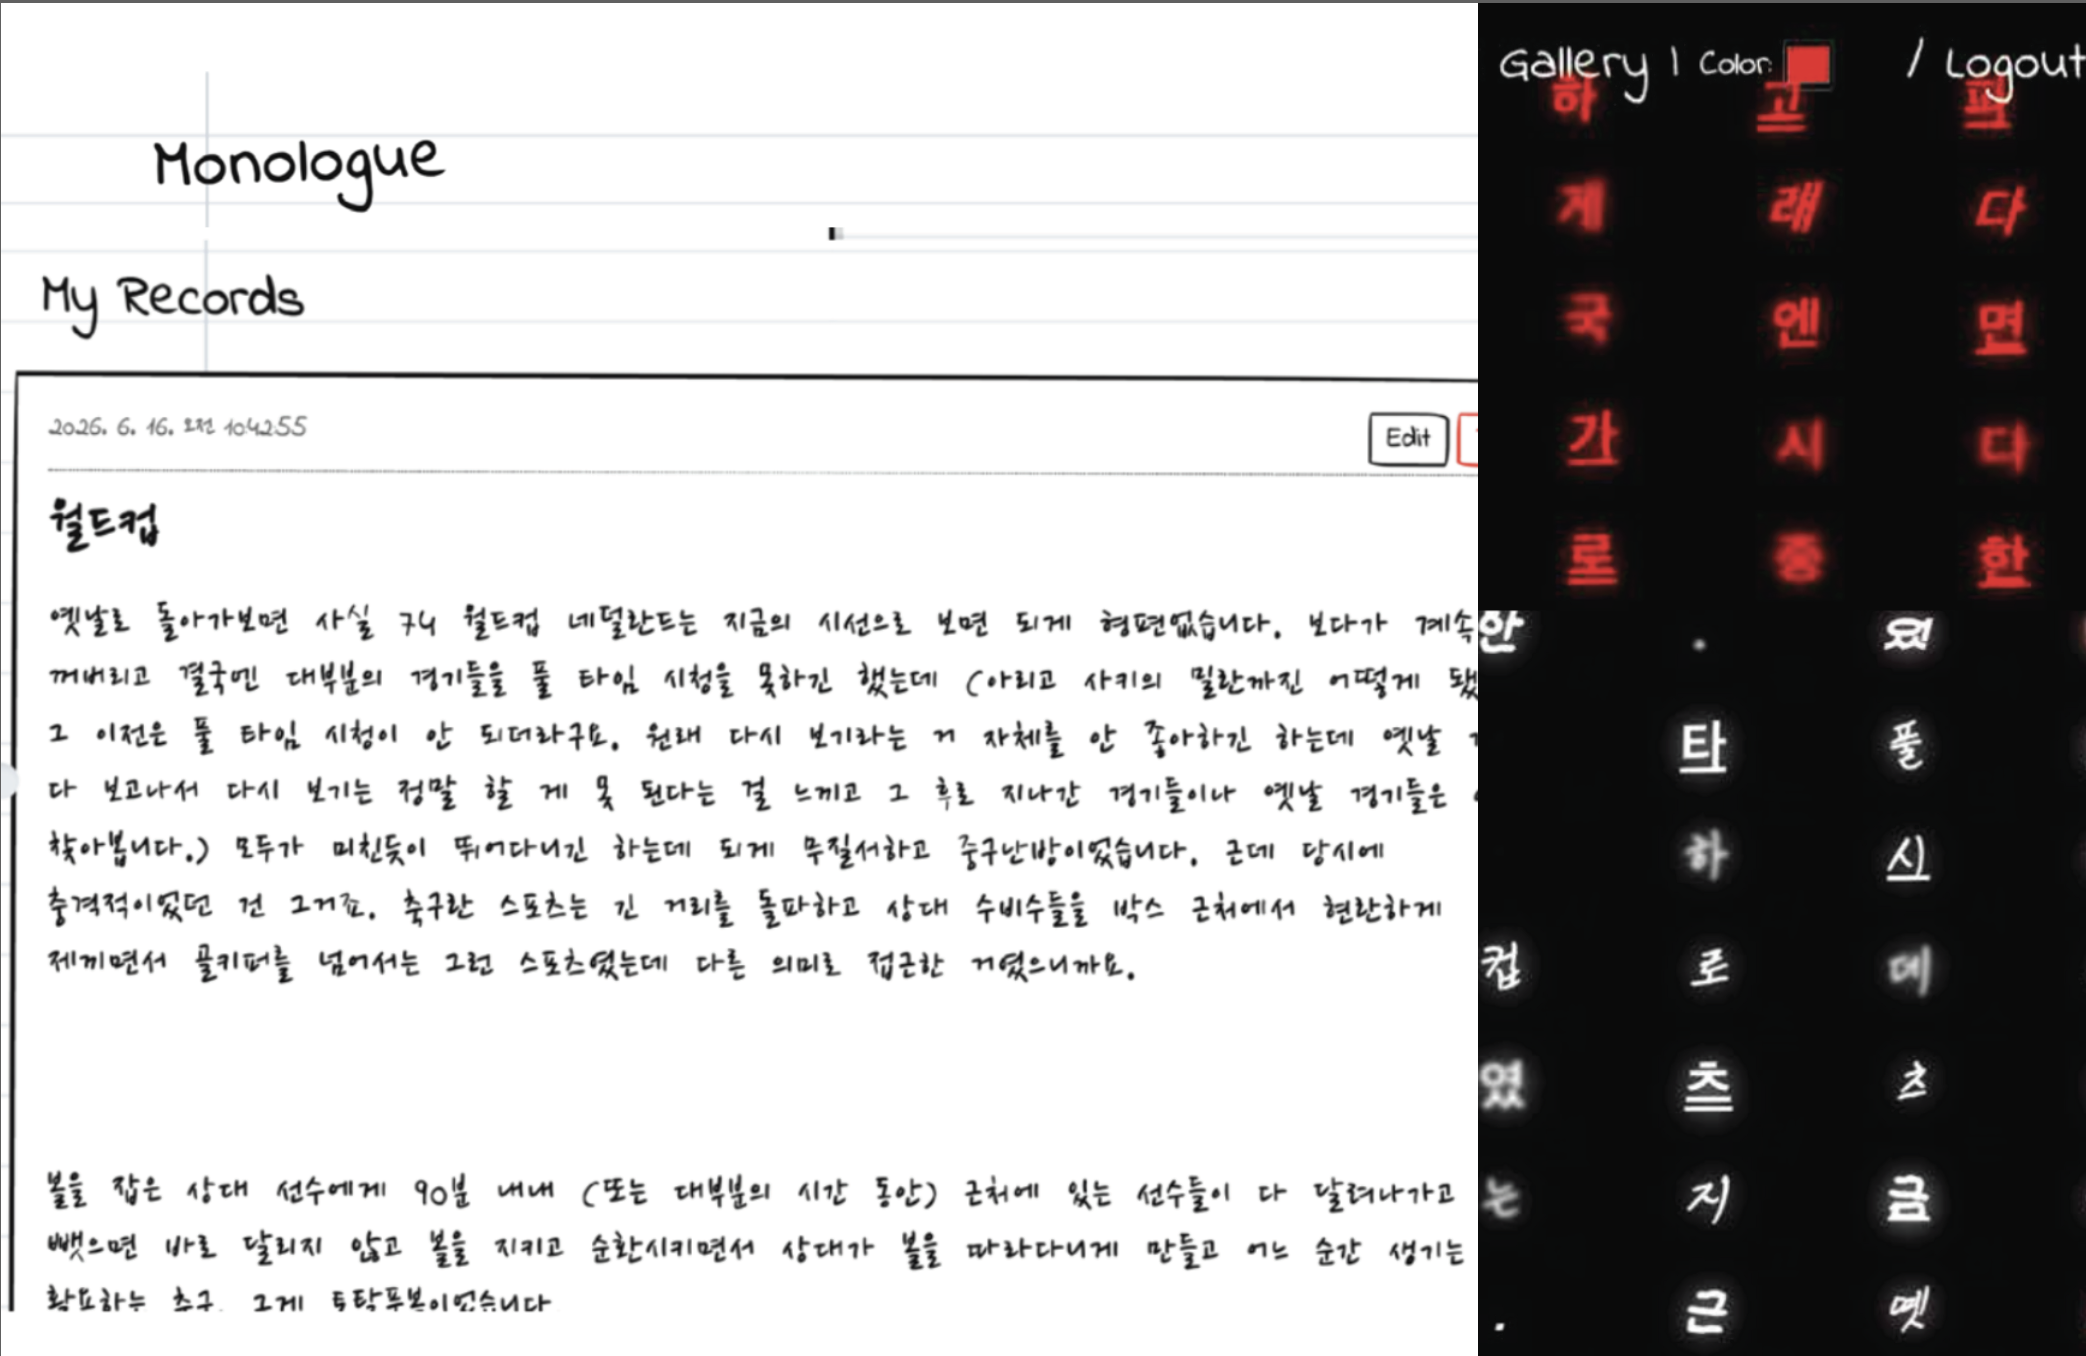 Monologue
My Records
2026. 6. 16. 오전 104255
Edit
월드컵
옛날로 돌아가보면 사실 74 월드컵 네덜란드는 지금의 시선으로 보면 되게 형편없습니다. 보다가 계속
꺼버리고 결국엔 대부분의 경기들을 풀 타임 시청을 못하긴 했는데 (아리고 사키의 밀란까진 어떻게 됐
그 이전은 풀 타임 시청이 안 되더라구요. 원래 다시 보기라는 거 자체를 안 좋아하긴 하는데 옛날
다 보고나서 다시 보기는 정말 할 게 못 된다는 걸 느끼고 그 후로 지나간 경기들이나 옛날 경기들은
찾아봅니다.) 모두가 미친듯이 뛰어다니긴 하는데 되게 무질서하고 중구난방이었습니다. 근데 당시에
충격적이었던 건 그거죠. 축구란 스포츠는 긴 거리를 돌파하고 상대 수비수들을 박스 근처에서 현란하게
제끼면서 골키퍼를 넘어서는 그런 스포츠였는데 다른 의미로 접근한 거였으니까요.
볼을 잡은 상대 선수에게 90분 내내 (또는 대부분의 시간 동안) 근처에 있는 선수들이 다 달려나가고
뺏으면 바로 달리지 않고 볼을 지키고 순환시키면서 상대가 볼을 따라다니게 만들고 어느 순간 생기는
그게 토탈풋볼이었습니다
Gallery | Color: / Logout
하 고
게 래 다
국 엔 면
가 시 다
로 중 한
안 . 었
타 풀
하 시
컵 로 데
였 츠 츠
는 지 금
. 근 옛